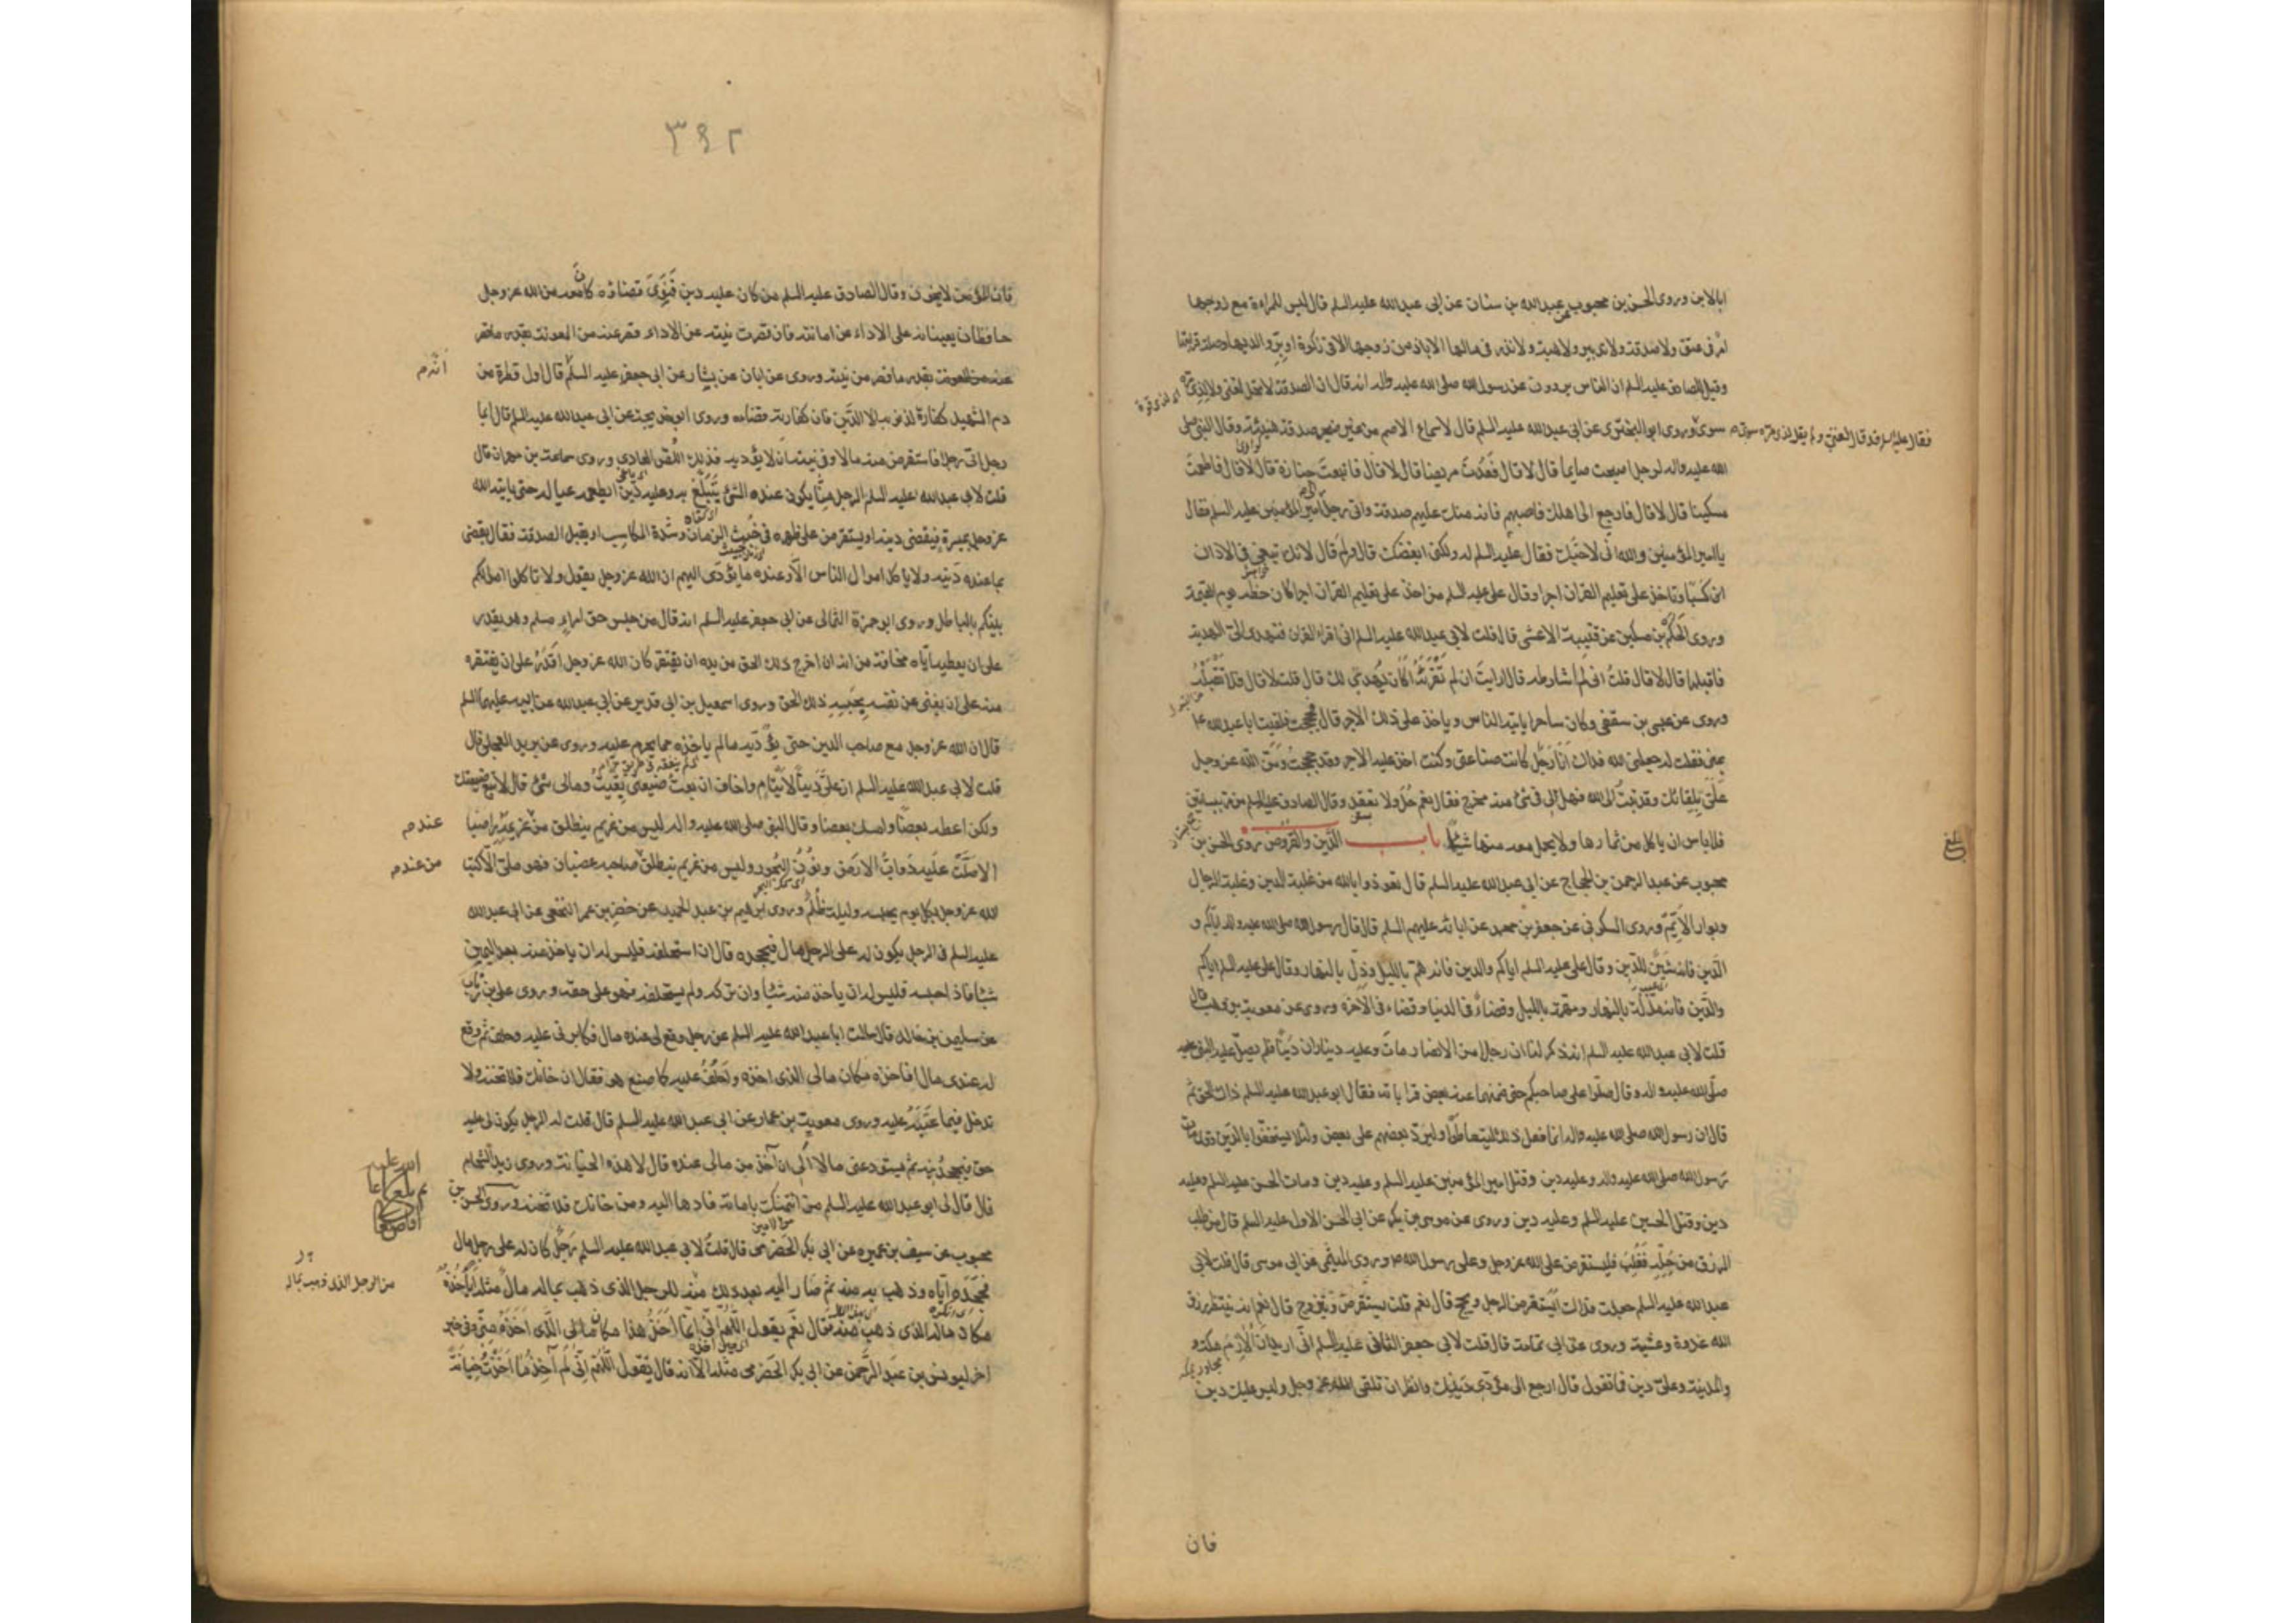 ابالابن وروى الحسن بن محبوب عن عبدالله بن سنان عن ابى عبدالله عليه السلم قال ليس للمراءة مع زوجها
امر فى عتق ولا صدقة ولا تدبير ولا هبة ولا نذر فى مالها الا باذن من زوجها الا فى زكوة او برّ والديها وصلة قرابتها
وقيل للصادق عليه السلم ان الناس يروون عن رسول الله صلى الله عليه واله انه قال ان الصدقة لا تحل لغنى ولا لذى مرة
سوى وروى ابو البخترى عن ابى عبدالله عليه السلم قال لاسماع الاصم من غير تضجر صدقة هنيئة وقال النبى صلى
فقال عليه السلم قد قال لغنى ولم يقل لذى مرة سوى
الله عليه واله لرجل اصبحت صايما قال لا قال فعُدتَ مريضا قال لا قال فاتبعتَ جنازة قال لا قال فاطعمتَ
مسكينا قال لا قال فارجع الى اهلك فاصبهم فانه منك عليهم صدقة واتى رجلٌ امير المؤمنين عليه السلم فقال
يا امير المؤمنين والله انى لاحبّك فقال عليه السلم له ولكنى ابغضك قال ولِمَ قال لانك تبغى فى الاذان
كسبًا وتاخذ على تعليم القران اجرا وقال على عليه السلم من اخذ على تعليم القران اجرا كان حظّه يوم القيمة
وروى الحَكَم بن مسكين عن قتيبة الاعشى قال قلت لابى عبدالله عليه السلم انى اقراء القران فتهدى الىّ الهدية
فاقبلها قال لا قال قلتُ انى لم اشارطه قال ارايت ان لم تُقْرِئْهُ أكان يُهدى لك قال قلت لا قال فلا تَقْبَلْهُ
وروى عن عيسى بن سقفى وكان ساحرا ياتيه الناس وياخذ على ذلك الاجر قال فحججت فلقيت ابا عبدالله ع
بمنى فقلت له جعلنى الله فداك انَا رَجُل كانت صناعتى وكنت اخذ عليه الاجر وقد حججتُ ومَنّ الله عز وجل
عَلَىّ بلِقائك وقد تبتُ الى الله فهل لى فى شئ منه مخرج فقال نعم حُلّ ولا تعقد وقال الصادق عليه السلم من مرّ ببساتين
فلا باس ان ياكل من ثمارها ولا يحمل معه منها شيئا باب الدَّين والقُروض روى الحسن بن
محبوب عن عبدالرحمن بن الحجاج عن ابى عبدالله عليه السلم قال تعوذوا بالله من غلبة الدين وغلبة الرجال
وبوار الايّم وروى السكونى عن جعفر بن محمد عن ابائه عليهم السلم قال قال رسول الله صلى الله عليه واله اياكم و
الدَّين فانه شَينُ الدّين وقال على عليه السلم اياكم والدين فانه همّ بالليل وذلّ بالنهار وقال على عليه السلم اياكم
والدَّين فانه مذلّة بالنهار ومهمّة بالليل وقضاءٌ فى الدنيا وقضاء فى الاخرة وروى عن معوية بن وهب قال
قلت لابى عبدالله عليه السلم انه ذكر لنا ان رجلا من الانصار مات وعليه ديناران دَينًا فلم يصلّ عليه النبى
صلى الله عليه واله وقال صلّوا على صاحبكم حتى ضمنهما عنه بعض قراباته فقال ابو عبدالله عليه السلم ذاك الحق ثم
قال ان رسول الله صلى الله عليه واله انما فعل ذلك ليتعاطَوا وليردّ بعضهم على بعض ولئلا يستخفّوا بالدَّين وقد مات
رسول الله صلى الله عليه واله وعليه دين وقتل امير المؤمنين عليه السلم وعليه دين ومات الحسن عليه السلم وعليه
دين وقتل الحسين عليه السلم وعليه دين وروى عن موسى بن بكر عن ابى الحسن الاول عليه السلم قال من طلب
الرزق من حِلّه فَغُلِبَ فليستقرض على الله عز وجل وعلى رسول الله ص وروى الميثمى عن ابى موسى قال قلت لابى
عبدالله عليه السلم جعلت فداك ايستقرض الرجل ويحج قال نعم قلت يستقرض ويتزوج قال نعم انه ينتظر رزق
الله غدوة وعشية وروى عن ابى ثمامة قال قلت لابى جعفر الثانى عليه السلم انى اريد ان اُلازِمَ مكة و
والمدينة وعلىّ دين فما تقول قال ارجع الى مؤدّى دَينِك وانظر ان تلقى الله عز وجل وليس عليك دين
فان
بلغ
٣٤٢
فان المؤمن لا يخون وقال الصادق عليه السلم من كان عليه دين فَيَنوِىَ قضاءه كان معه من الله عز وجل
حافظان يعينانه على الاداء عن امانته فان قصرت نيته عن الاداء قصر عنه من المعونة بقدر ما قصر
من نيته وروى عن ابان عن بشار عن ابى جعفر عليه السلم قال اول قطرة من
دم الشهيد كفارة لذنوبه الا الدَّين فان كفارته قضاءه وروى ابو خديجة عن ابى عبدالله عليه السلم قال ايما
رجل اتى رجلا فاستقرض منه مالا وفى نيته ان لا يؤديه فذلك اللص العادى وروى سماعة بن مهران قال
قلت لابى عبدالله عليه السلم الرجل منّا يكون عنده الشئ يَتَبَلّغ به وعليه دَين ايطعمه عياله حتى ياتيه الله
عز وجل بميسرة فيقضى دينه او يستقرض على ظهره فى خُبث الزمان وشدة المكاسب او يقبل الصدقة فقال يقضى
بما عنده دَينه ولا ياكل اموال الناس الا وعنده ما يؤدى اليهم ان الله عز وجل يقول ولا تاكلوا اموالكم
بينكم بالباطل وروى ابو حمزة الثمالى عن ابى جعفر عليه السلم انه قال من حبس حق امرء مسلم وهو يقدر
على ان يعطيه اياه مخافة من انه ان اخرج ذلك الحق من يده ان يفتقر كان الله عز وجل اقدرُ على ان يفقره
منه على ان يغنى عن نفسه بِحَبسِهِ ذلك الحق وروى اسمعيل بن ابى قدير عن ابى عبدالله عن ابيه عليهما السلم
قال ان الله عز وجل مع صاحب الدين حتى يؤدّيه ما لم ياخذه مما يحرم عليه وروى عن بريد العجلى قال
قلت لابى عبدالله عليه السلم ان علىّ دَينًا لايتام واخاف ان بعتُ ضيعتى بقيتُ ومالى شئ قال لا تبع ضيعتك
ولكن اعطه بعضًا وامسك بعضا وقال النبى صلى الله عليه واله ليس من غريم ينطلق من عنده غريمه راضيا
الا صَلّت عليه دَوابُّ الارض ونُونُ البُحُور وليس من غريم ينطلق صاحبه غضبان وهو ملئ الا كتب
الله عز وجل بكل يوم يحبسه وليلة ظُلم وروى ابرهيم بن عبدالحميد عن خضر بن عمرو النخعى عن ابى عبدالله
عليه السلم فى الرجل يكون له على الرجل مال فيجحده قال ان استحلفه فليس له ان ياخذ منه بعد اليمين
شيئا فاذا حبسه فليس له ان ياخذ منه شيئا وان تركه ولم يستحلفه فهو على حقه وروى على بن رئاب
عن سليمن بن خالد قال سالت ابا عبدالله عليه السلم عن رجل وقع لى عنده مال فكابرنى عليه وحلف ثم وقع
له عندى مال افآخذه مكان مالى الذى اخذه واحلفُ عليه كما صنع هو فقال ان خانك فلا تخنه ولا
تدخل فيما عتبتَه عليه وروى معوية بن عمار عن ابى عبدالله عليه السلم قال قلت له الرجل يكون لى عليه
حق فيجحدنيه ثم يستودعنى مالا الى ان آخذ من مالى عنده قال لا هذه الخيانة وروى زيد الشحام
قال قال لى ابو عبدالله عليه السلم من ائتمنك بامانة فادها اليه ومن خانك فلا تخنه وروى الحسن بن
محبوب عن سيف بن عميرة عن ابى بكر الحضرمى قال قلتُ لابى عبدالله عليه السلم رَجُلٌ كان له على رجل مال
فجحده اياه وذهب به منه ثم صار اليه بعد ذلك منه للرجل الذى ذهب بماله مالٌ مثله ايأخُذُهُ
مكان ماله الذى ذهب منه قال نعم يقول اللّهم انى انما آخذُ هذا مكان مالى الذى اخذه منّى وفى خبر
اخر ليونس بن عبد الرحمن عن ابى بكر الحضرمى مثله الا انه قال يقول اللّهُم انّى لَم آخِذ ما اخَذتُ خِيانَةً
عندم
من عندم
من الرجل الذى ذهب بماله